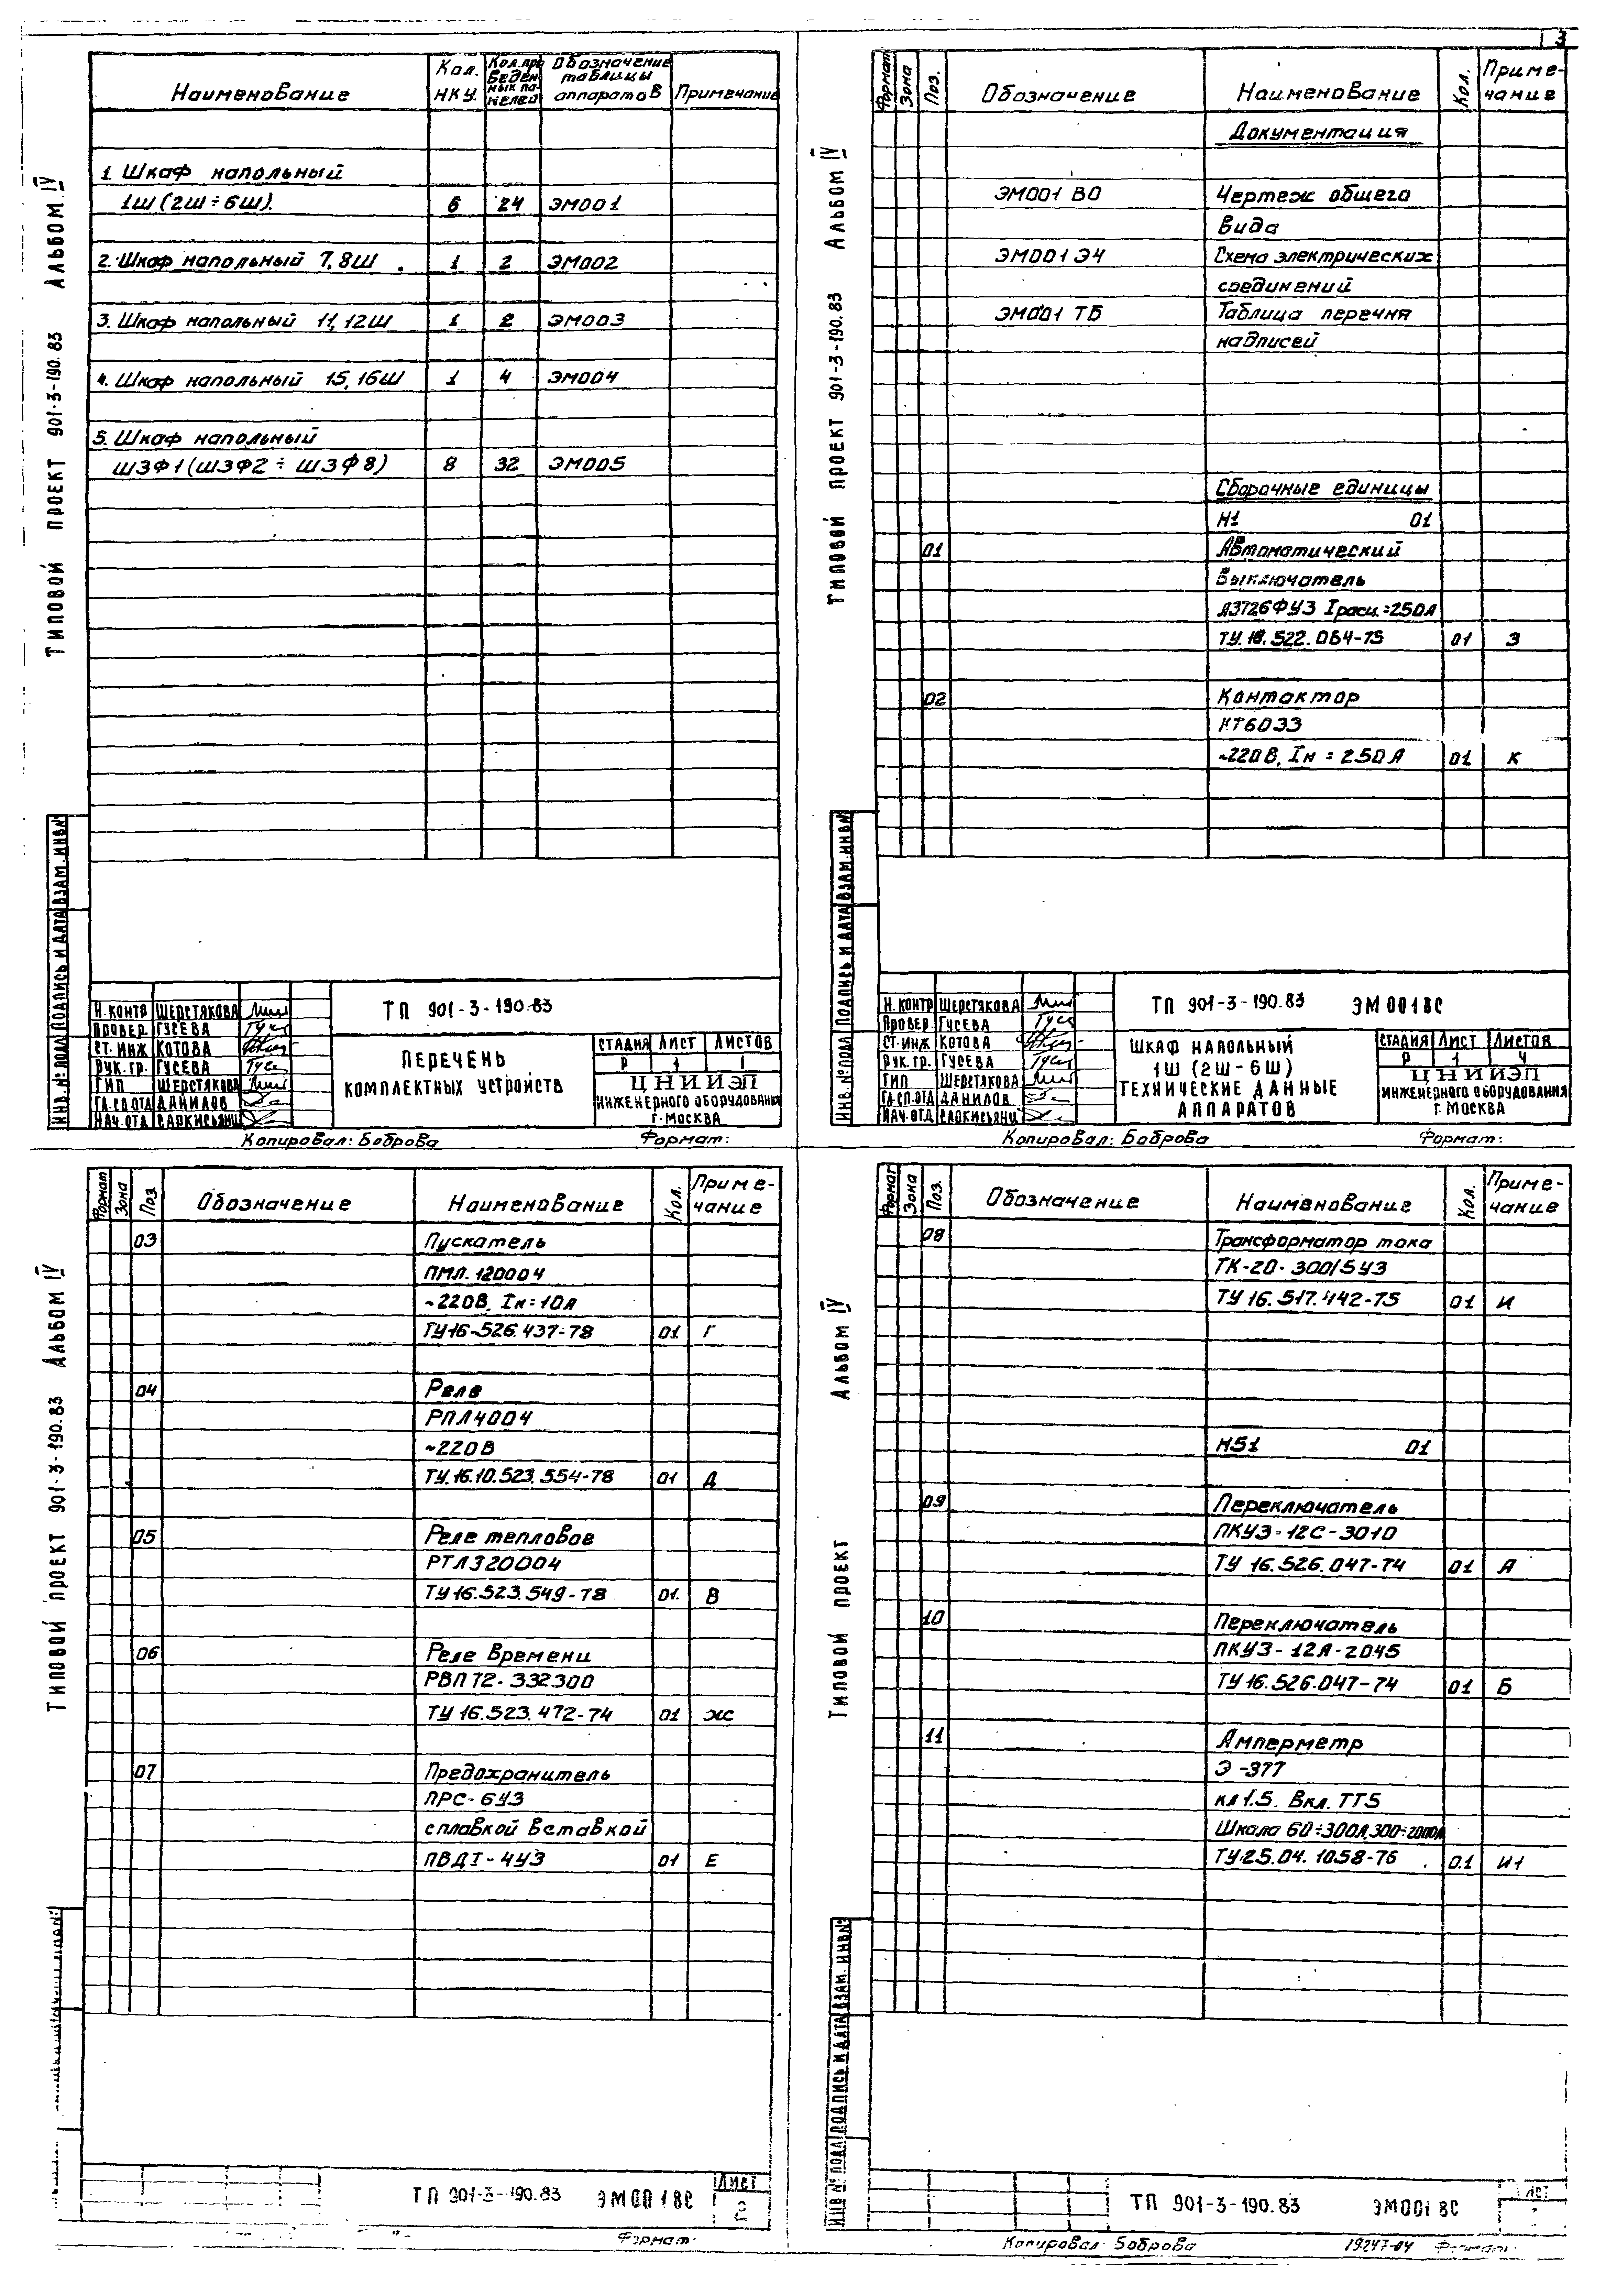 3
Наименование Кол. НКУ. Кол. приведенных панелей Обозначение таблицы аппаратов Примечание
1. Шкаф напольный
1Ш (2Ш ÷ 6Ш). 6 24 ЭМ001
2. Шкаф напольный 7,8Ш 1 2 ЭМ002
3. Шкаф напольный 11,12Ш 1 2 ЭМ003
4. Шкаф напольный 15,16Ш 1 4 ЭМ004
5. Шкаф напольный
ШЗФ1 (ШЗФ2 ÷ ШЗФ8) 8 32 ЭМ005
ТИПОВОЙ ПРОЕКТ 901-3-190.83 АЛЬБОМ IV
ИНВ.№ПОДЛ ПОДПИСЬ И ДАТА ВЗАМ.ИНВ№
Н.КОНТР ШЕРСТЯКОВА
ПРОВЕР. ГУСЕВА
СТ.ИНЖ КОТОВА
РУК.ГР. ГУСЕВА
ГИП ШЕРСТЯКОВА
ГЛ.СП.ОТД ДАНИЛОВ
НАЧ.ОТД САРКИСЬЯНЦ
ТП 901-3-190.83
ПЕРЕЧЕНЬ
КОМПЛЕКТНЫХ УСТРОЙСТВ
СТАДИЯ ЛИСТ ЛИСТОВ
Р 1 1
ЦНИИЭП
ИНЖЕНЕРНОГО ОБОРУДОВАНИЯ
Г.МОСКВА
Копировал: Боброва Формат:
Формат Зона Поз. Обозначение Наименование Кол. Примечание
Документация
ЭМ001 ВО Чертеж общего
вида
ЭМ001 Э4 Схема электрических
соединений
ЭМ001 ТБ Таблица перечня
надписей
Сборочные единицы
Н1 01
01 Автоматический
выключатель
А3726ФУ3 Iрасц.=250А
ТУ.16.522.064-75 01 З
02 Контактор
КТ6033
~220В, Iн = 250А 01 К
ТИПОВОЙ ПРОЕКТ 901-3-190.83 АЛЬБОМ IV
ИНВ.№ПОДЛ ПОДПИСЬ И ДАТА ВЗАМ.ИНВ№
Н.КОНТР ШЕРСТЯКОВА
ПРОВЕР. ГУСЕВА
СТ.ИНЖ КОТОВА
РУК.ГР. ГУСЕВА
ГИП ШЕРСТЯКОВА
ГЛ.СП.ОТД ДАНИЛОВ
НАЧ.ОТД САРКИСЬЯНЦ
ТП 901-3-190.83 ЭМ001ВС
ШКАФ НАПОЛЬНЫЙ
1Ш (2Ш-6Ш)
ТЕХНИЧЕСКИЕ ДАННЫЕ
АППАРАТОВ
СТАДИЯ ЛИСТ ЛИСТОВ
Р 1 4
ЦНИИЭП
ИНЖЕНЕРНОГО ОБОРУДОВАНИЯ
Г.МОСКВА
Копировал: Боброва Формат:
Формат Зона Поз. Обозначение Наименование Кол. Примечание
03 Пускатель
ПМЛ.120004
~220В, Iн=10А
ТУ16-526.437-78 01 Г
04 Реле
РПЛ4004
~220В
ТУ.16.10.523.554-78 01 Д
05 Реле тепловое
РТЛ320004
ТУ16.523.549-78 01. В
06 Реле времени
РВП72-332300
ТУ16.523.472-74 01 Ж
07 Предохранитель
ПРС-6У3
с плавкой вставкой
ПВДI-4У3 01 Е
ТИПОВОЙ ПРОЕКТ 901-3-190.83 АЛЬБОМ IV
ТП 901-3-190.83 ЭМ001ВС
ЛИСТ
2
Формат:
Формат Зона Поз. Обозначение Наименование Кол. Примечание
08 Трансформатор тока
ТК-20-300/5У3
ТУ16.517.442-75 01 И
Н51 01
09 Переключатель
ПКУ3-12С-3010
ТУ 16.526.047-74 01 А
10 Переключатель
ПКУ3-12А-2045
ТУ16.526.047-74 01 Б
11 Амперметр
Э-377
кл1.5. Вкл. ТТ5
Шкала 60÷300А,300÷2000А
ТУ25.04.1058-76 01 И1
ТИПОВОЙ ПРОЕКТ АЛЬБОМ IV
ИНВ.№ПОДЛ ПОДПИСЬ И ДАТА ВЗАМ.ИНВ№
ТП 901-3-190.83 ЭМ001ВС
Копировал: Боброва 19247-04